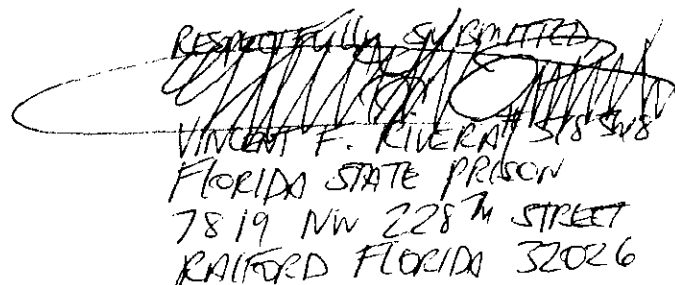 RESPECTFULLY SUBMITTED
VINCENT F. RIVERA #
FLORIDA STATE PRISON
7819 NW 228TH STREET
RAIFORD FLORIDA 32026